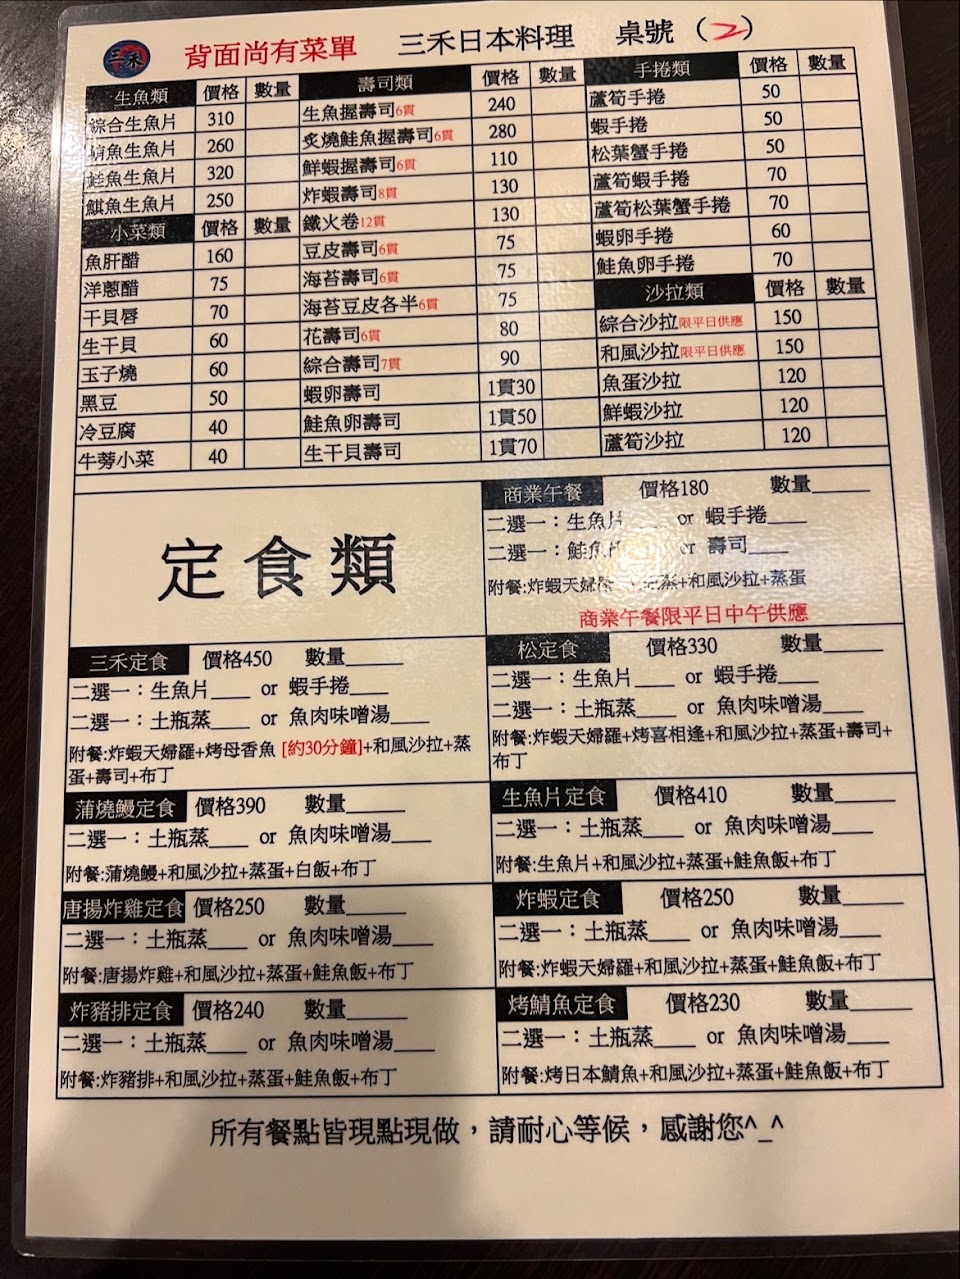 三禾 背面尚有菜單 三禾日本料理 桌號（2）
生魚類 價格 數量
綜合生魚片 310
鮪魚生魚片 260
鮭魚生魚片 320
鯕魚生魚片 250
小菜類 價格 數量
魚肝醋 160
洋蔥醋 75
干貝唇 70
生干貝 60
玉子燒 60
黑豆 50
冷豆腐 40
牛蒡小菜 40
壽司類 價格 數量
生魚握壽司6貫 240
炙燒鮭魚握壽司6貫 280
鮮蝦握壽司6貫 110
炸蝦壽司8貫 130
鐵火卷12貫 130
豆皮壽司6貫 75
海苔壽司6貫 75
海苔豆皮各半6貫 75
花壽司6貫 80
綜合壽司7貫 90
蝦卵壽司 1貫30
鮭魚卵壽司 1貫50
生干貝壽司 1貫70
手捲類 價格 數量
蘆筍手捲 50
蝦手捲 50
松葉蟹手捲 50
蘆筍蝦手捲 70
蘆筍松葉蟹手捲 70
蝦卵手捲 60
鮭魚卵手捲 70
沙拉類 價格 數量
綜合沙拉限平日供應 150
和風沙拉限平日供應 150
魚蛋沙拉 120
鮮蝦沙拉 120
蘆筍沙拉 120
定食類
商業午餐 價格180 數量______
二選一：生魚片 or 蝦手捲____
二選一：鮭魚 or 壽司____
附餐:炸蝦天婦羅+和風沙拉+蒸蛋
商業午餐限平日中午供應
三禾定食 價格450 數量______
二選一：生魚片____ or 蝦手捲____
二選一：土瓶蒸____ or 魚肉味噌湯____
附餐:炸蝦天婦羅+烤母香魚 [約30分鐘]+和風沙拉+蒸
蛋+壽司+布丁
松定食 價格330 數量______
二選一：生魚片____ or 蝦手捲____
二選一：土瓶蒸____ or 魚肉味噌湯____
附餐:炸蝦天婦羅+烤喜相逢+和風沙拉+蒸蛋+壽司+
布丁
蒲燒鰻定食 價格390 數量______
二選一：土瓶蒸____ or 魚肉味噌湯____
附餐:蒲燒鰻+和風沙拉+蒸蛋+白飯+布丁
生魚片定食 價格410 數量______
二選一：土瓶蒸____ or 魚肉味噌湯____
附餐:生魚片+和風沙拉+蒸蛋+鮭魚飯+布丁
唐揚炸雞定食 價格250 數量______
二選一：土瓶蒸____ or 魚肉味噌湯____
附餐:唐揚炸雞+和風沙拉+蒸蛋+鮭魚飯+布丁
炸蝦定食 價格250 數量______
二選一：土瓶蒸____ or 魚肉味噌湯____
附餐:炸蝦天婦羅+和風沙拉+蒸蛋+鮭魚飯+布丁
炸豬排定食 價格240 數量______
二選一：土瓶蒸____ or 魚肉味噌湯____
附餐:炸豬排+和風沙拉+蒸蛋+鮭魚飯+布丁
烤鯖魚定食 價格230 數量______
二選一：土瓶蒸____ or 魚肉味噌湯____
附餐:烤日本鯖魚+和風沙拉+蒸蛋+鮭魚飯+布丁
所有餐點皆現點現做，請耐心等候，感謝您^_^